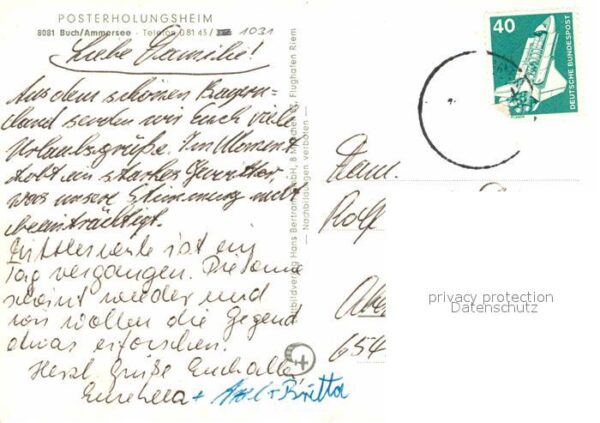 POSTERHOLUNGSHEIM
8081 Buch/Ammersee - Telefon 0 81 43 / 1031
Liebe Familie!
Aus dem schönen Bayern=
land senden wir Euch viele
Urlaubsgrüße. Im Moment
tobt ein starkes Gewitter
was unsere Stimmung nicht
beeinträchtigt.
Mittlerweile ist ein
Tag vergangen. Die Sonne
scheint wieder und
wir wollen die Gegend
etwas erforschen.
Herzl. Grüße Euch alle
+ Axel + Britta
Luftbildverlag Hans Bertram GmbH, 8 München 87, Flughafen Riem
— Nachbildungen verboten —
40
DEUTSCHE BUNDESPOST
Fam.
Rolf
654
privacy protection
Datenschutz